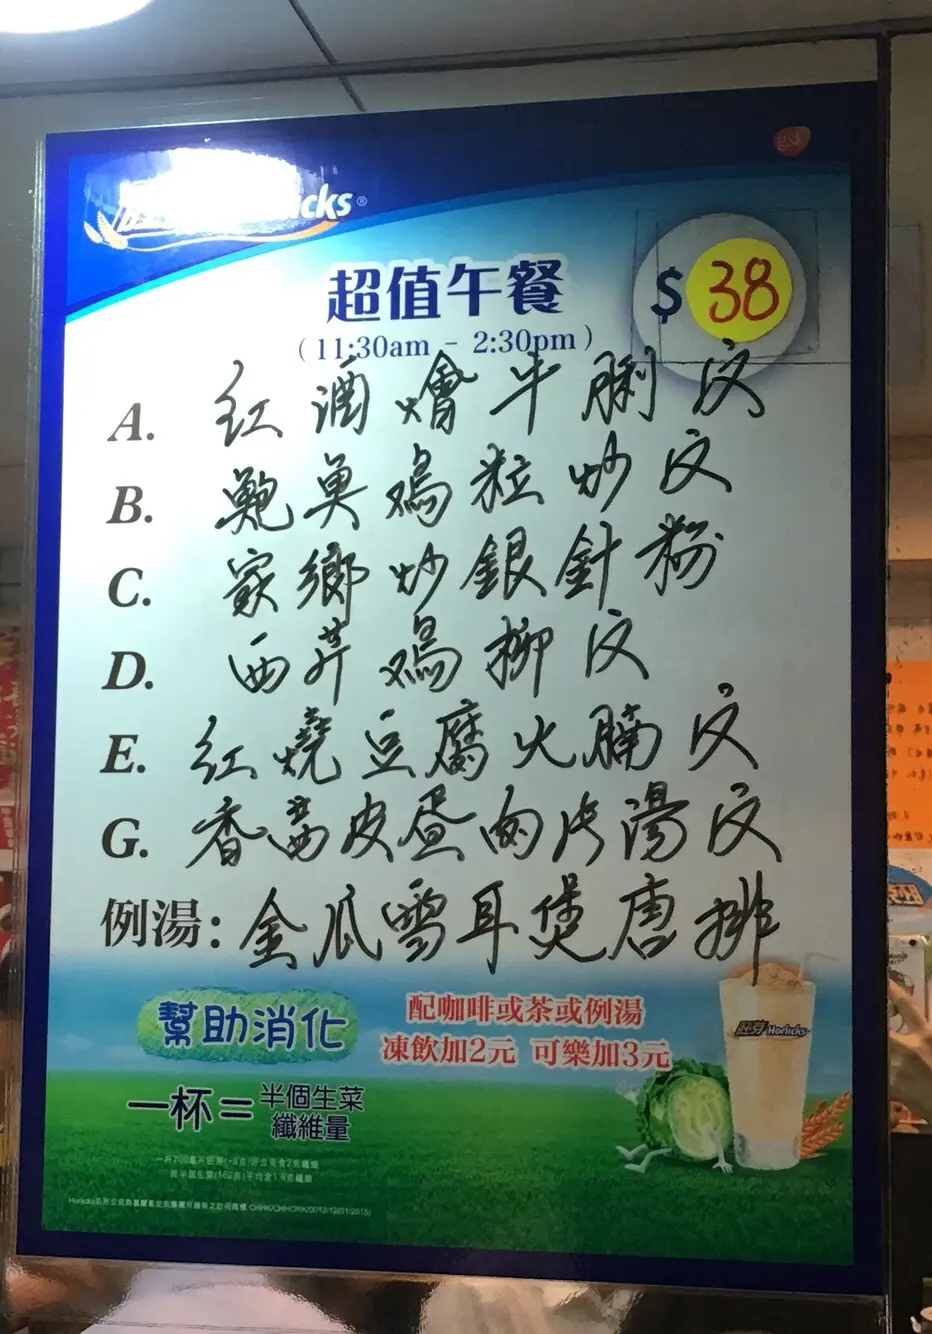 Horlicks®
gsk
超值午餐
$38
(11:30am - 2:30pm)
A. 红酒燴牛脷飯
B. 鮑魚鸡粒炒飯
C. 家鄉炒銀針粉
D. 西芹鸡柳飯
E. 红燒豆腐火腩飯
G. 香茜皮蛋肉片湯飯
例湯：金瓜雪耳煲唐排
幫助消化
配咖啡或茶或例湯
凍飲加2元 可樂加3元
好立克 Horlicks
一杯=半個生菜
纖維量